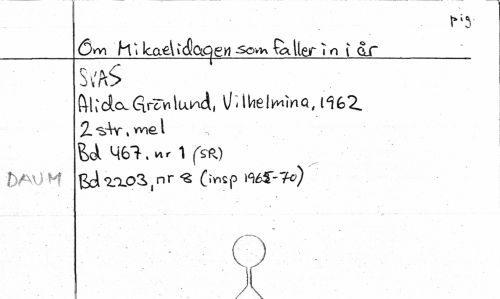 pig.
Om Mikaelidagen som faller in i år
SVAS
Alida Grönlund, Vilhelmina, 1962
2 str. mel
Bd 467. nr 1 (SR)
DAUM Bd 2203, nr 8 (insp 1965-70)